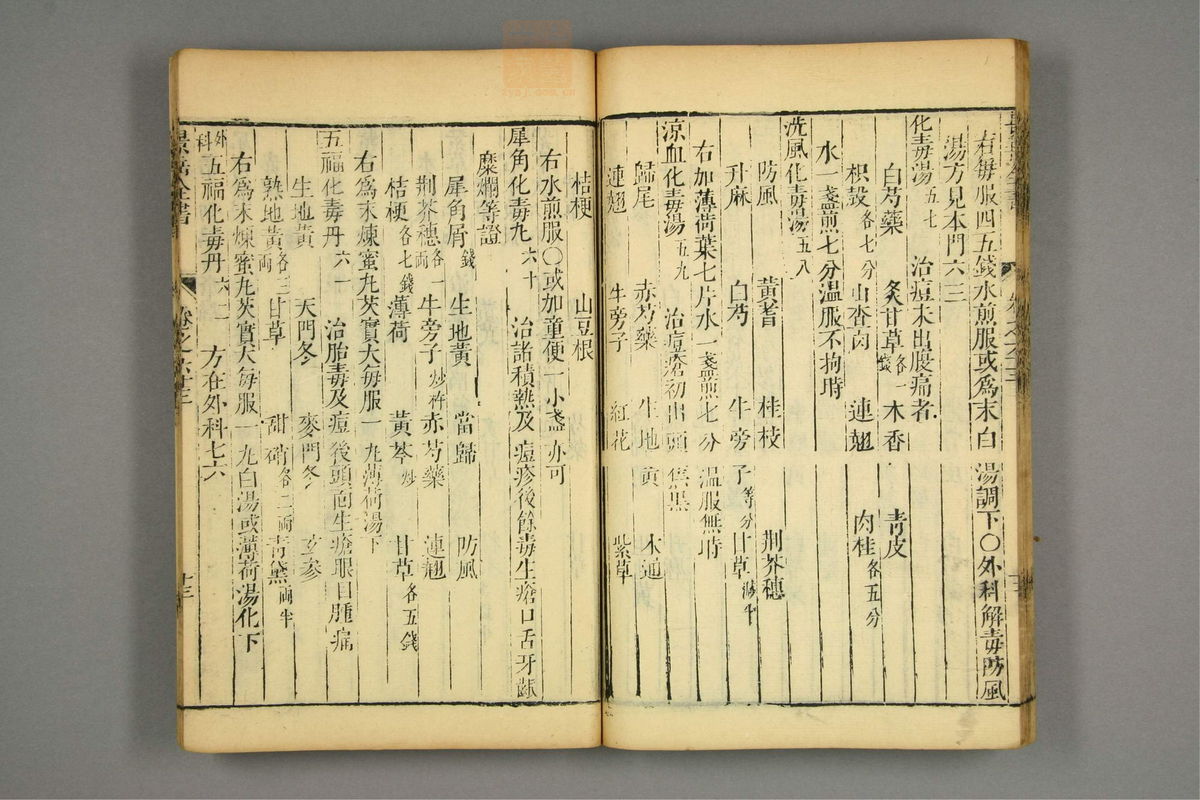 右每服四五錢水煎服或為末白湯調下〇外科解毒防風
湯方見本門六三
化毒湯 五七 治痘未出腹痛者
白芍藥 炙甘草各一錢 木香 青皮
枳殼各七分 山查肉 連翹 肉桂各五分
水一盞煎七分溫服不拘時
洗風化毒湯 五八
防風 黃耆 桂枝 荆芥穗
升麻 白芍 牛旁子等分 甘草減半
右加薄荷葉七片水一盞煎七分溫服無時
涼血化毒湯 五九 治痘瘡初出頭焦黑
歸尾 赤芍藥 生地黃 木通
連翹 牛旁子 紅花 紫草
桔梗 山豆根
右水煎服〇或加童便一小盞亦可
犀角化毒丸 六十 治諸積熱及痘疹後餘毒生瘡口舌牙齦
糜爛等證
犀角屑錢 生地黃 當歸 防風
荆芥穗各一兩 牛旁子炒杵 赤芍藥 連翹
桔梗各七錢 薄荷 黃芩炒 甘草各五錢
右為末煉蜜丸芡實大每服一丸薄荷湯下
五福化毒丹 六一 治胎毒及痘後頭面生瘡眼目腫痛
生地黃 天門冬 麥門冬 玄參
熟地黃各三兩 甘草 甜硝各二兩 青黛兩半
右為末煉蜜丸芡實大每服一丸白湯或薄荷湯化下
外科五福化毒丹 六二 方在外科七六
景岳全書 卷之六十三 十三